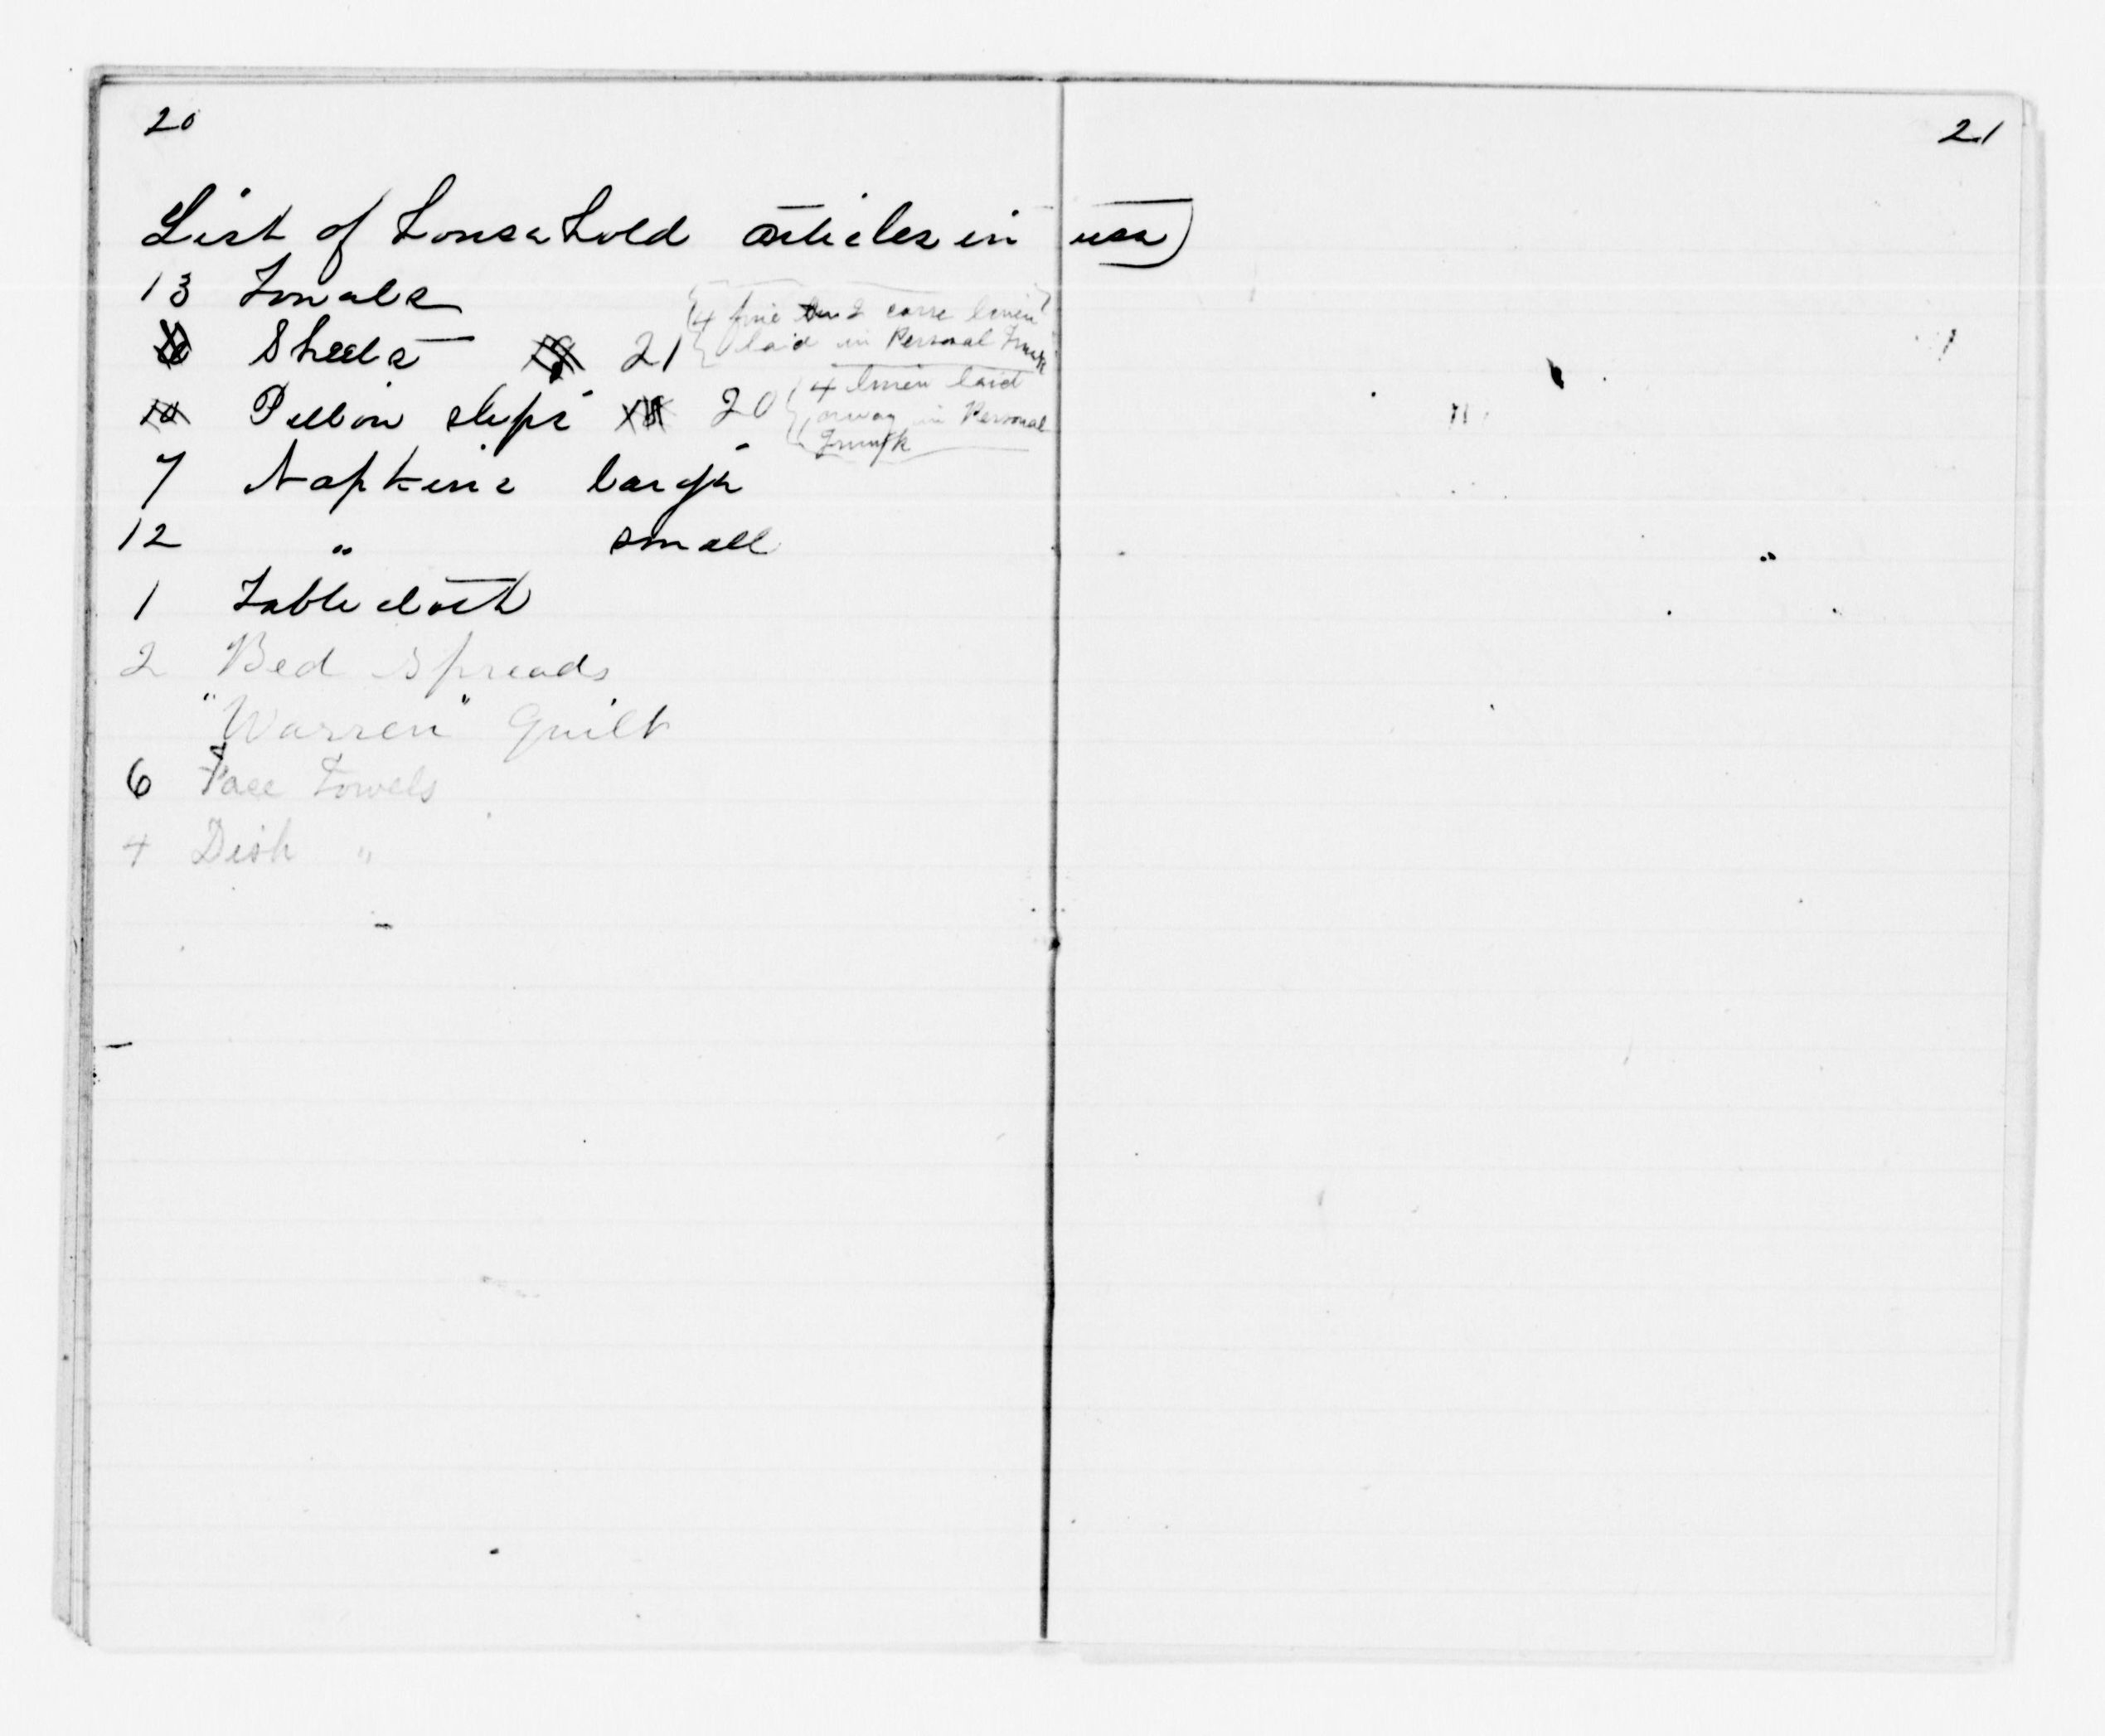 20
21
List of household articles in use
13 Towels
Sheets 21 {4 fine 2 corse linen
laid in Personal Trunk
10 Pillow slips 20 {4 linen laid
away in Personal
Trunk
7 Napkins large
12 " small
1 Table cloth
2 Bed Spreads
"Warren" Quilt
6 Face Towels
4 Dish "